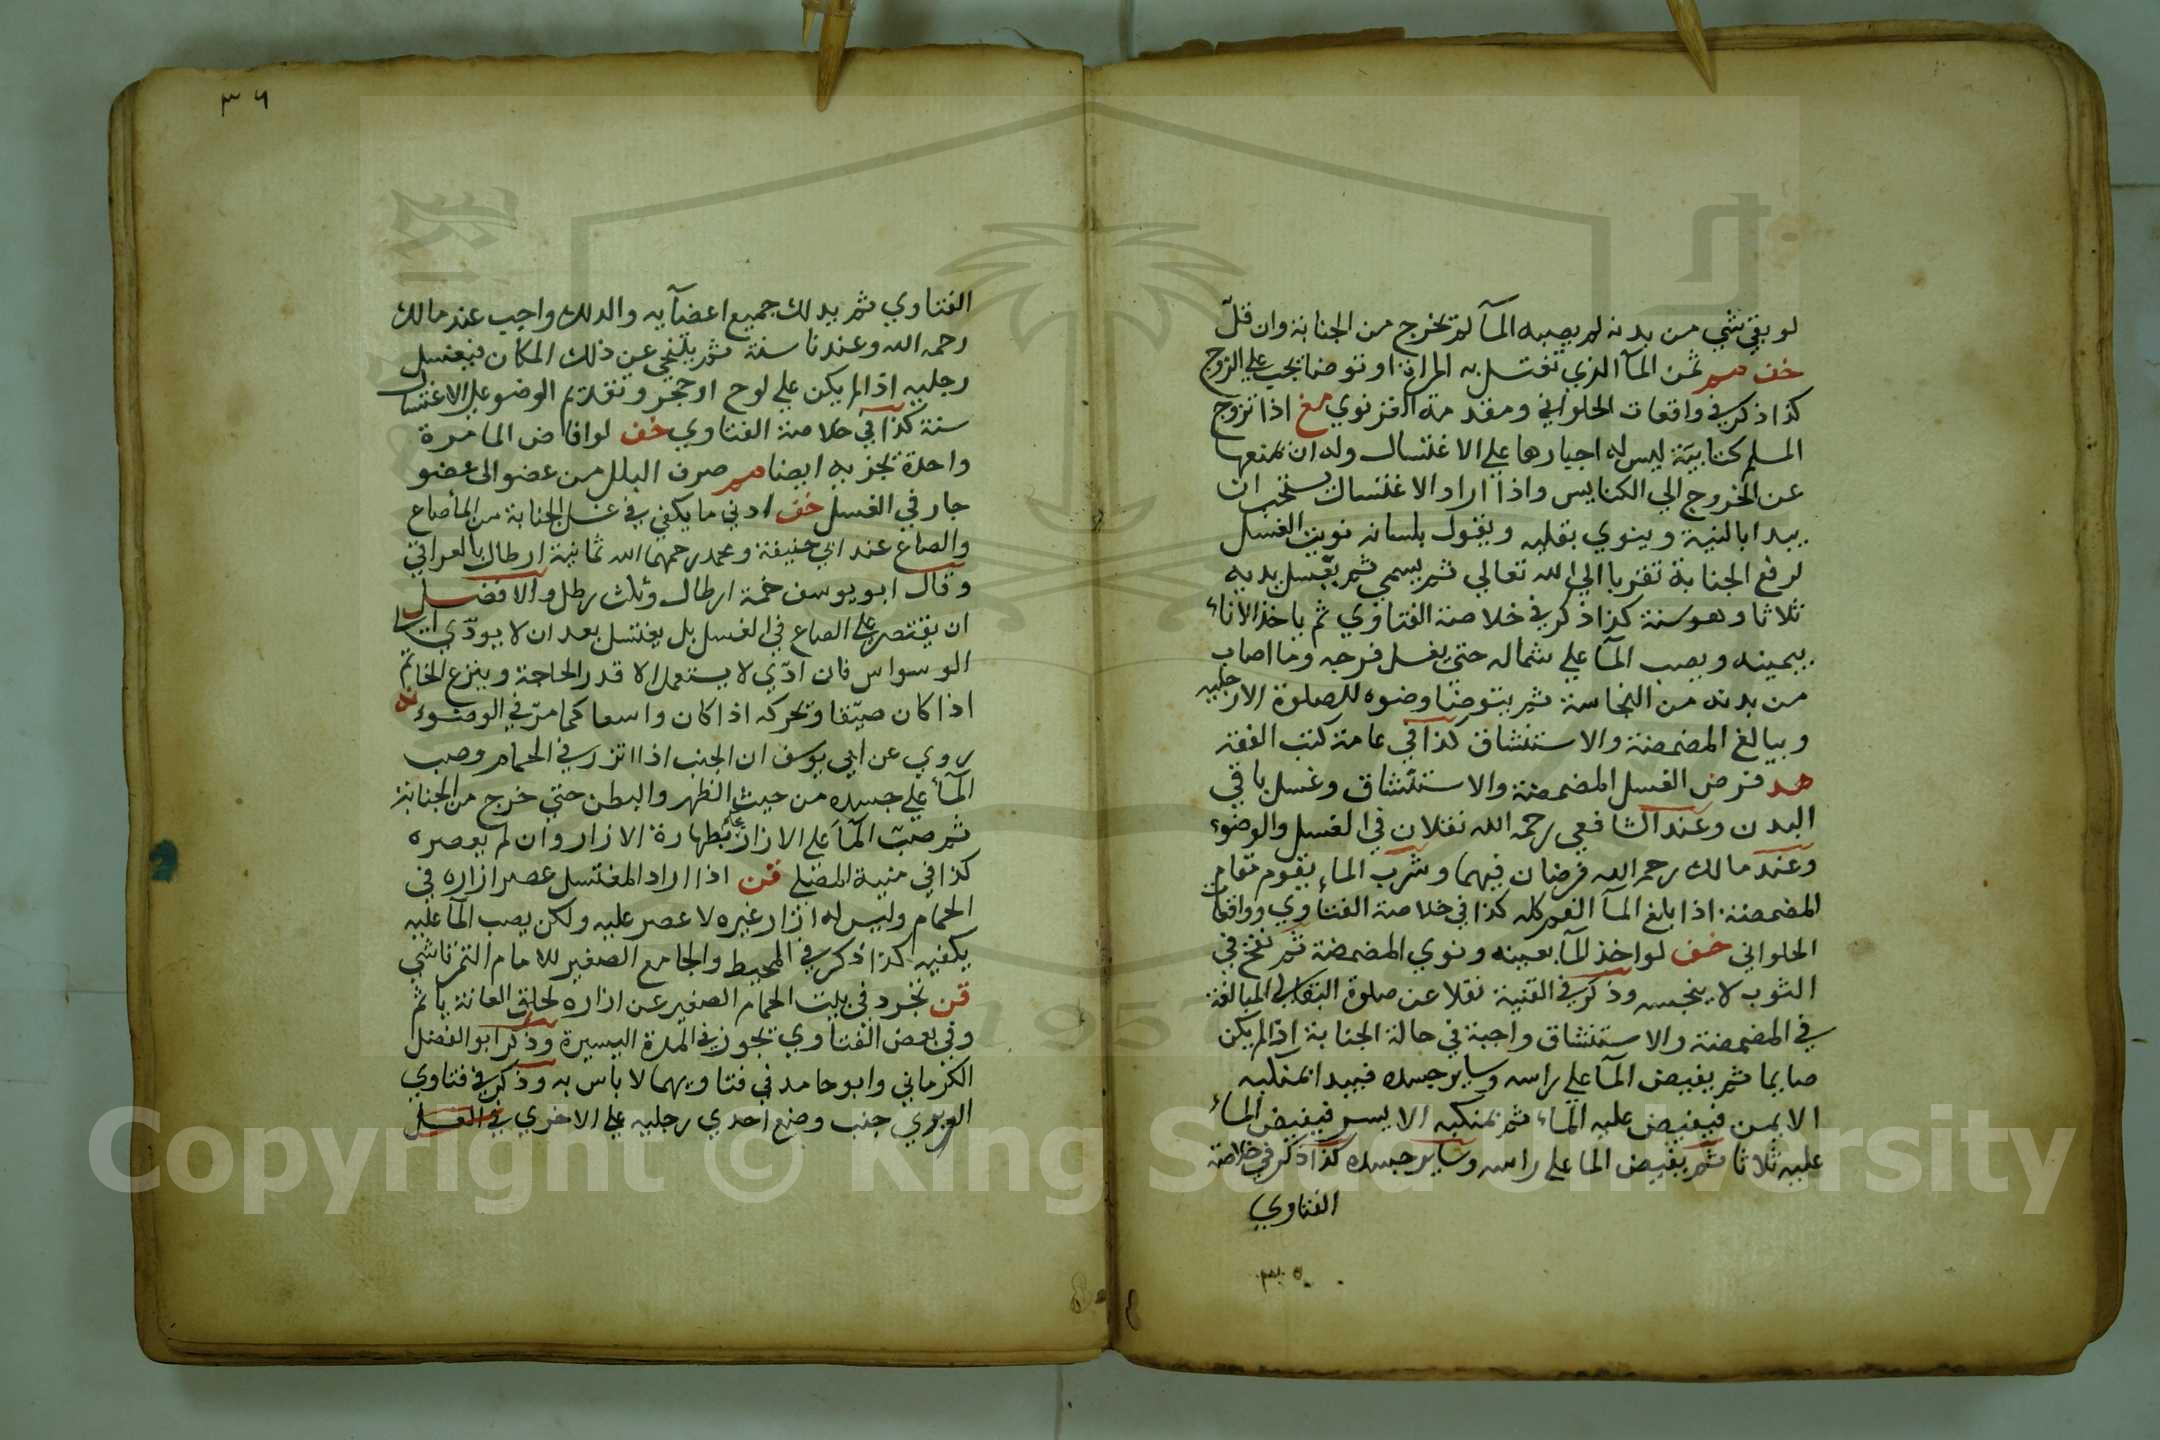 لو بقي شي من بدنه لم يصبه المآ لم تخرج من الجنابة وان قلّ
خف مير ثمن المآ الذي تغتسل به المراة او توضا يجب علي الزوج
كذا ذكر في واقعات الحلواني ومقدمة الغزنوي مغ اذا تزوج
المسلم كتابيّة ليس له اجبارها علي الاغتسال وله ان يمنعها
عن الخروج الي الكنايس واذا اراد الاغتسال يستحب ان
يبدا بالنية وينوي بقلبه ويقول بلسانه نويت الغسل
لرفع الجنابة تقربا الي الله تعالي ثم يسمي ثم يغسل يديه
ثلاثا وهو سنة كذا ذكر في خلاصة الفتاوي ثم ياخذ الاناء
بيمينه ويصب المآ علي شماله حتي يغسل فرجه وما اصاب
من بدنه من النجاسة ثم يتوضا وضوه للصلوة الا رجليه
ويبالغ المضمضة والاستنشاق كذا في عامة كتب الفقه
هد فرض الغسل المضمضة والاستنشاق وغسل باقي
البدن وعند الشافعي رحمه الله نفلان في الغسل والوضوء
وعند مالك رحمه الله فرضان فيهما وشرب الماء يقوم مقام
المضمضة اذا بلغ المآ الفم كله كذا في خلاصة الفتاوي وواقعات
الحلواني خف لو اخذ المآ بعينه ونوي المضمضة ثم نفخ في
الثوب لا ينجسه وذكر في القنية نقلا عن صلوة البقالي المبالغة
في المضمضة والاستنشاق واجبة في حالة الجنابة اذا لم يكن
صايما ثم يفيض المآ علي راسه وساير جسده فيبدا بمنكبه
الايمن فيفيض عليه الماء ثم بمنكبه الايسر فيفيض الماء
عليه ثلاثا ثم يفيض الما علي راسه وساير جسده كذا ذكر في خلاصة
الفتاوي
٣٦
الفتاوي ثم يدلك جميع اعضآيه والدلك واجب عند مالك
رحمه الله وعندنا سنة ثم يتنحي عن ذلك المكان فيغسل
رجليه اذا لم يكن علي لوح او حجر وتقديم الوضو علي الاغتسال
سنة كذا في خلاصة الفتاوي خف لو افاض الما مرة
واحدة تجزيه ايضا مير صرف البلل من عضو الى عضو
جاز في الغسل خف ادني ما يكفي في غسل الجنابة من المأ صاع
والصاع عند ابي حنيفة ومحمد رحمهما الله ثمانية ارطال بالعراقي
وقال ابو يوسف خمة ارطال وثلث رطل والافضل
ان يقتصر علي الصاع في الغسل بل يغتسل بعد ان لا يودّي الي
الوسواس فان ادّي لا يستعمل الا قدر الحاجة وينزع الخاتم
اذا كان ضيّقا وتحركه اذا كان واسعا كما مرّ في الوضوء
روي عن ابي يوسف ان الجنب اذا اتزر في الحمام وصب
المآء علي جسده من حيث الظهر والبطن حتي خرج من الجنابة
ثم صبّ المآ علي الازار بطهارة الازار وان لم يعصره
كذا في منية المصلي قن اذا اراد المغتسل عصر ازاره في
الحمام وليس له ازار غيره لا عصر عليه ولكن يصب المآ عليه
يكفيه كذا ذكر في المحيط والجامع الصغير للامام التمرتاشي
قن تجرد في بيت الحمام الصغير عن ازاره لحلق العانة ياثم
وفي بعض الفتاوي تجوز في المدة اليسيرة وذكر ابو الفضل
الكرماني وابو حامد في فتاويهما لا باس به وذكر في فتاوي
جنب وضع احدي رجليه علي الاخري في الغسل
Copyright © King Saud University
1957